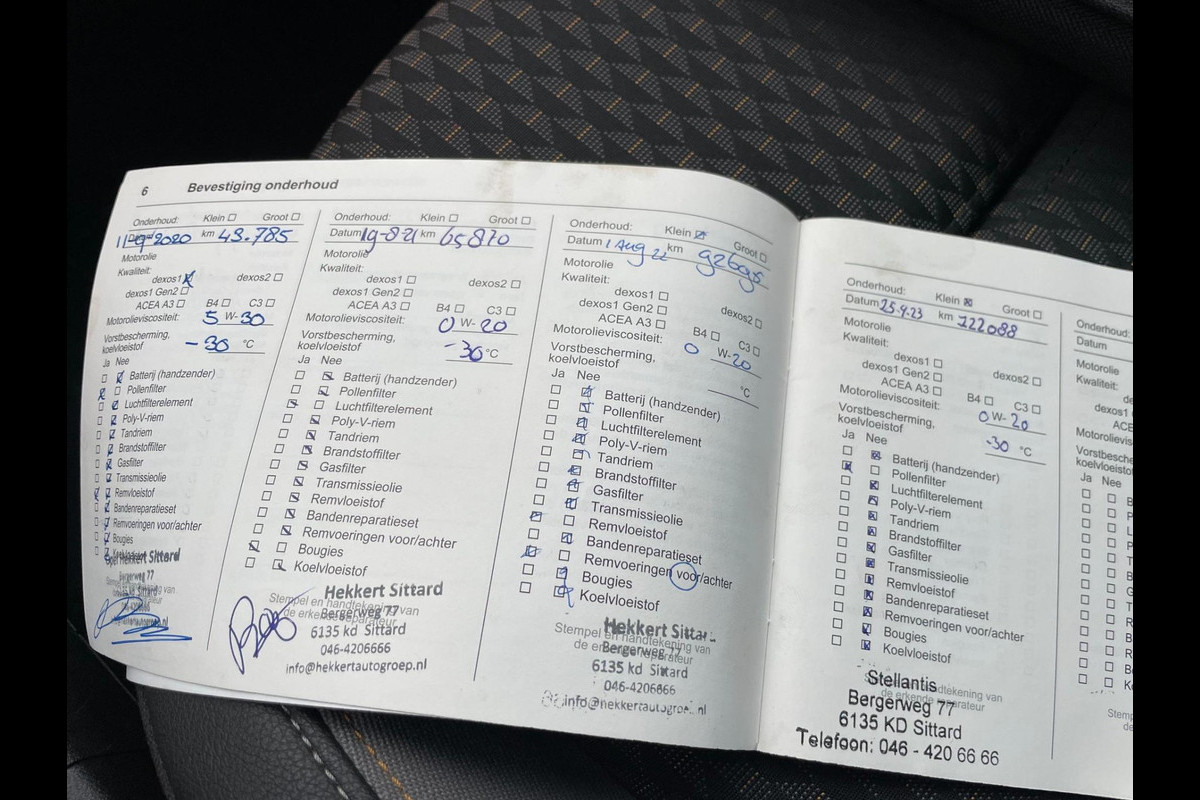 6 Bevestiging onderhoud
Onderhoud: Klein Groot
Datum 11-9-2020 km 43.785
Motorolie
Kwaliteit:
dexos1 dexos2
dexos1 Gen2
ACEA A3 B4 C3
Motorolieviscositeit: 5 W-30
Vorstbescherming,
koelvloeistof -30 °C
Ja Nee
Batterij (handzender)
Pollenfilter
Luchtfilterelement
Poly-V-riem
Tandriem
Brandstoffilter
Gasfilter
Transmissieolie
Remvloeistof
Bandenreparatieset
Remvoeringen voor/achter
Bougies
Koelvloeistof
Opel Hekkert Sittard
Bergerweg 77
Onderhoud: Klein Groot
Datum 19-8-21 km 65870
Motorolie
Kwaliteit:
dexos1 dexos2
dexos1 Gen2
ACEA A3 B4 C3
Motorolieviscositeit: 0 W-20
Vorstbescherming,
koelvloeistof -30 °C
Ja Nee
Batterij (handzender)
Pollenfilter
Luchtfilterelement
Poly-V-riem
Tandriem
Brandstoffilter
Gasfilter
Transmissieolie
Remvloeistof
Bandenreparatieset
Remvoeringen voor/achter
Bougies
Koelvloeistof
Stempel en handtekening van
de erkende reparateur
Hekkert Sittard
Bergerweg 77
6135 kd Sittard
046-4206666
info@hekkertautogroep.nl
Onderhoud: Klein Groot
Datum 1 Aug 22 km
Motorolie
Kwaliteit:
dexos1 dexos2
dexos1 Gen2
ACEA A3 B4 C3
Motorolieviscositeit: 0 W-20
Vorstbescherming,
koelvloeistof °C
Ja Nee
Batterij (handzender)
Pollenfilter
Luchtfilterelement
Poly-V-riem
Tandriem
Brandstoffilter
Gasfilter
Transmissieolie
Remvloeistof
Bandenreparatieset
Remvoeringen voor/achter
Bougies
Koelvloeistof
Stempel en handtekening van
de erkende reparateur
Hekkert Sittar
Bergerweg 77
6135 kd Sittard
046-4206666
info@hekkertautogroep.nl
Onderhoud: Klein Groot
Datum 25.9.23 km 122088
Motorolie
Kwaliteit:
dexos1 dexos2
dexos1 Gen2
ACEA A3 B4 C3
Motorolieviscositeit: 0 W-20
Vorstbescherming,
koelvloeistof -30 °C
Ja Nee
Batterij (handzender)
Pollenfilter
Luchtfilterelement
Poly-V-riem
Tandriem
Brandstoffilter
Gasfilter
Transmissieolie
Remvloeistof
Bandenreparatieset
Remvoeringen voor/achter
Bougies
Koelvloeistof
Stempel en handtekening van
de erkende reparateur
Stellantis
Bergerweg 77
6135 KD Sittard
Telefoon: 046 - 420 66 66
Onderhoud:
Datum
Motorolie
Kwaliteit:
dexos1
ACE
Motorolievis
Vorstbesche
koelvloeistof
Ja Nee
B
P
L
P
T
B
G
T
R
B
R
B
K
Stemp
de